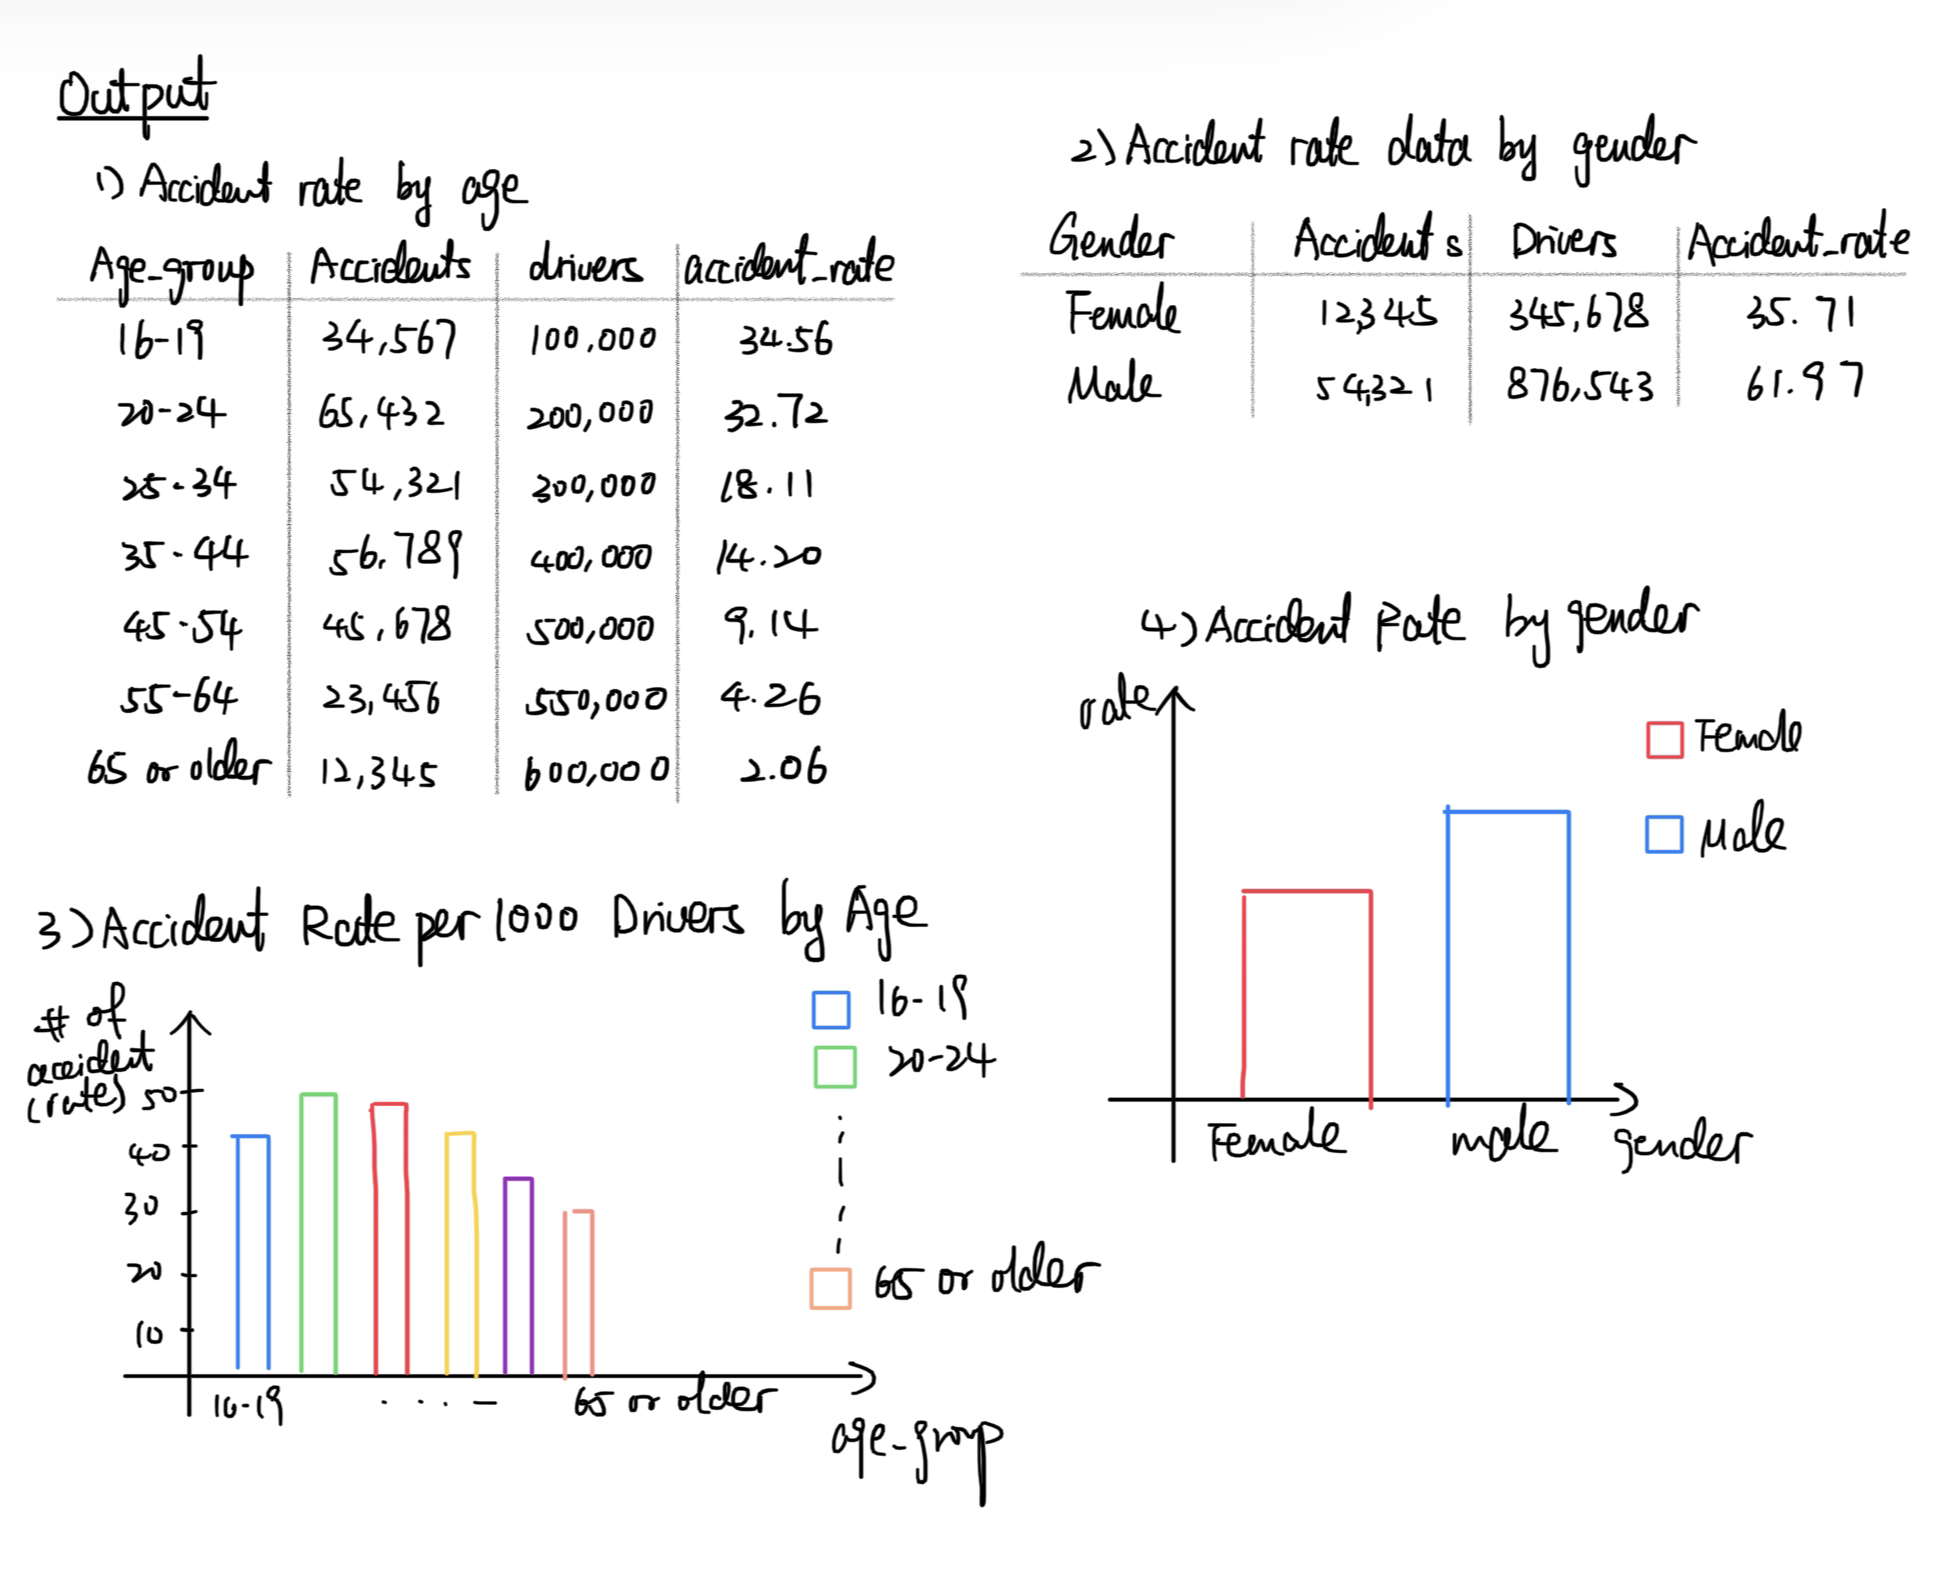 Output
1) Accident rate by age
Age_group Accidents drivers accident_rate
16-19 34,567 100,000 34.56
20-24 65,432 200,000 32.72
25-34 54,321 300,000 18.11
35-44 56.789 400,000 14.20
45-54 45,678 500,000 9.14
55-64 23,456 550,000 4.26
65 or older 12,345 600,000 2.06
2) Accident rate data by gender
Gender Accidents Drivers Accident_rate
Female 12,345 345,678 35.71
Male 54,321 876,543 61.97
3) Accident Rate per 1000 Drivers by Age
# of
accident
(rates)
50
40
30
20
10
16-19 65 or older
age-group
16-19
20-24
65 or older
4) Accident Rate by gender
rate
Female
Male
Female male gender